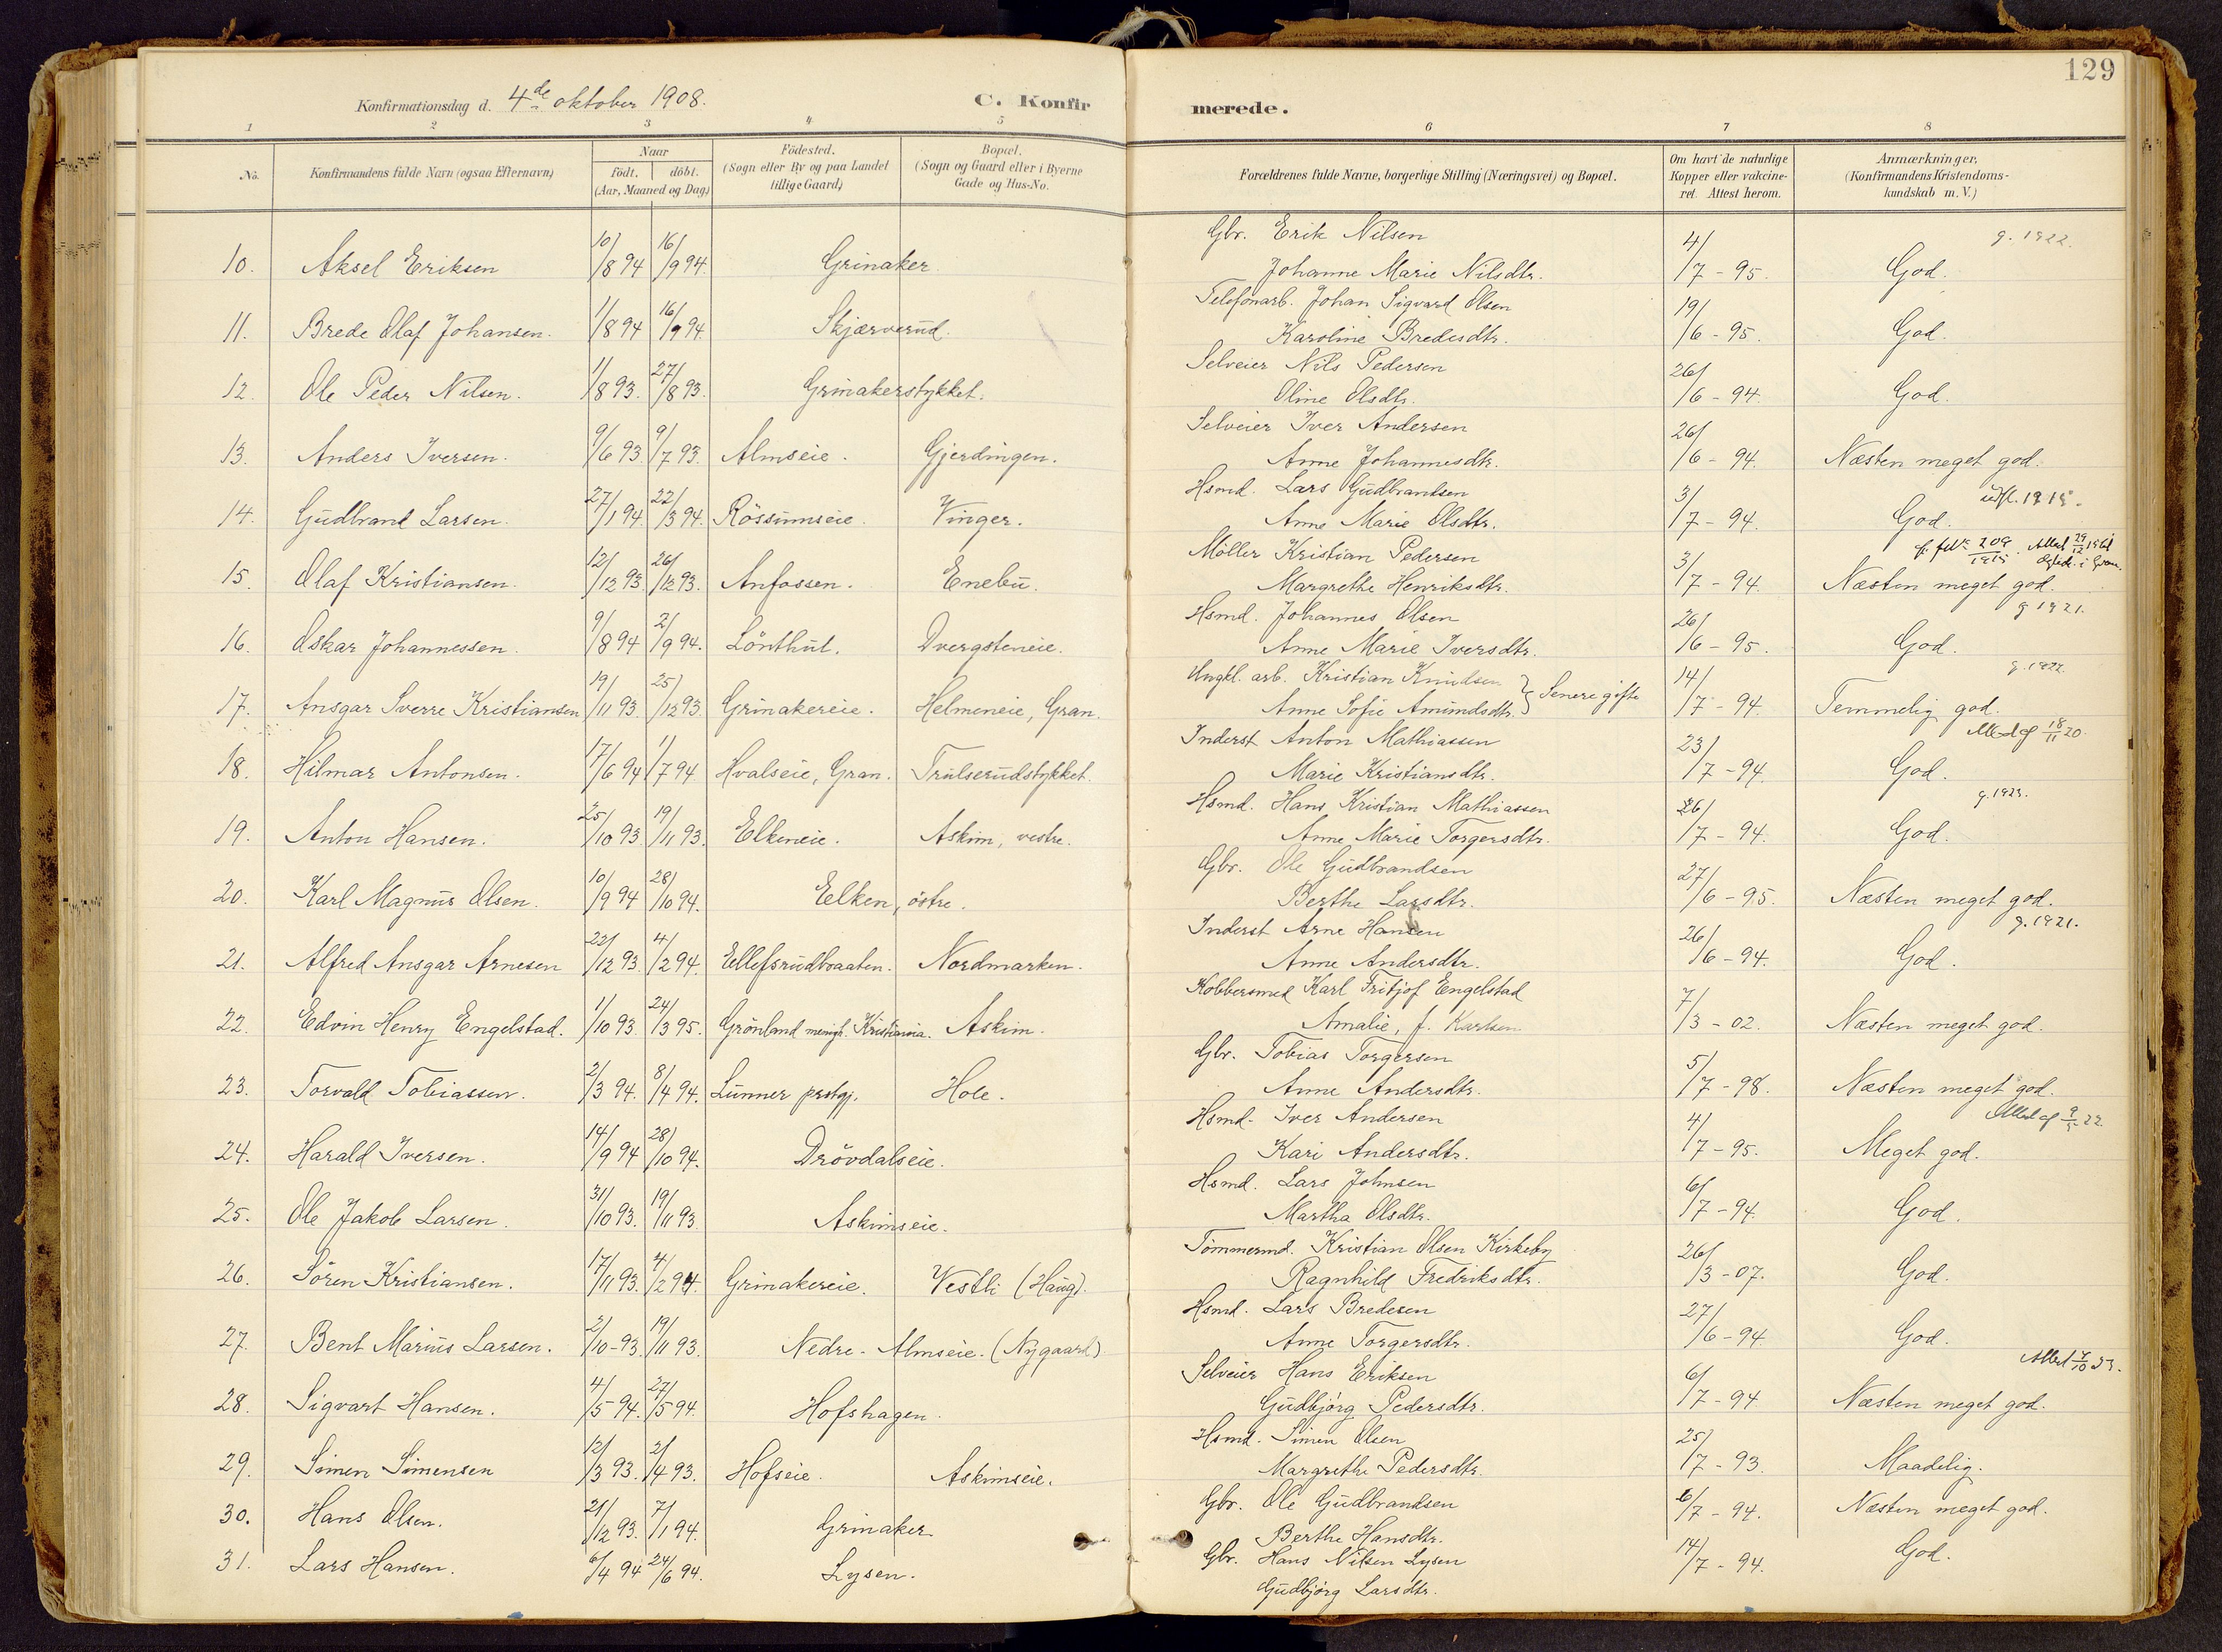 129
Konfirmationsdag d. 4de oktober 1908. C. Konfirmerede.
1 2 3 4 5 6 7 8
No. Konfirmandens fulde Navn (ogsaa Efternavn) Naar födt. döbt. (Aar, Maaned og Dag) Födested. (Sogn eller By og paa Landet tillige Gaard) Bopæl. (Sogn og Gaard eller i Byerne Gade og Hus-No. Forældrenes fulde Navne, borgerlige Stilling (Næringsvei) og Bopæl. Om havt de naturlige Kopper eller vakcineret. Attest herom. Anmærkninger. (Konfirmandens Kristendomskundskab m. V.)
Gbr. Erik Nilsen g. 1922.
10. Aksel Eriksen 10/8 94 16/9 94. Grinaker Johanne Marie Nilsdtr. 4/7-95. God.
Telefonarb. Johan Sigvard Olsen
11. Brede Olaf Johansen. 1/8 94 16/9 94. Skjærverud. Karoline Bredesdtr. 19/6-95. God.
Selveier Nils Pedersen
12. Ole Peder Nilsen. 1/8 93. 27/8 93. Grinakerstykket. Oline Olsdtr. 26/6-94. God.
Selveier Iver Andersen
13. Anders Iversen. 9/6 93. 9/7 93. Almseie. Gjerdingen. Anne Johannesdtr. 26/6-94. Næsten meget god.
Hsmd. Lars Gudbrandsen utfl. 1915.
14. Gudbrand Larsen. 27/1 94. 22/3 94. Rössumseie. Vinger. Anne Marie Olsdtr. 3/7-94. God.
Möller Kristian Pedersen
15. Olaf Kristiansen. 12/12 93. 26/12 93. Anfossen. Enebu. Margrethe Henriksdtr. 3/7-94. Næsten meget god.
Hsmd. Johannes Olsen g 1921.
16. Oskar Johannessen. 9/8 94 2/9 94. Lönthul. Dvergsteneie. Anne Marie Iversdtr. 26/6-95. God.
Ungkl. arb. Kristian Knudsen } Senere gifte g. 1922.
17. Ansgar Sverre Kristiansen 19/11 93. 25/12 93. Grinakereie. Helmeneie, Gran. Anne Sofie Amundsdtr. 14/7-94. Temmelig god.
Inderst Anton Mathiassen 18/11 20.
18. Hilmar Antonsen. 17/6 94 1/7 94 Hvalseie, Gran. Trulserudstykket. Marie Kristiansdtr. 23/7-94. God.
Hsmd. Hans Kristian Mathiassen g. 1923.
19. Anton Hansen. 25/10 93. 19/11 93. Elkeneie. Askim, vestre. Anne Marie Torgersdtr. 26/7-94. God.
Gbr. Ole Gudbrandsen
20. Karl Magnus Olsen. 10/9 94 28/10 94. Eelken, östre. Berthe Larsdtr. 27/6-95. Næsten meget god.
Inderst Arne Hansen g. 1921.
21. Alfred Ansgar Arnesen 22/12 93. 4/2 94. Ellefsrudbraaten. Nordmarken. Anne Andersdtr. 26/6-94. God.
Kobbersmed Karl Fritjof Engelstad
22. Edvin Henry Engelstad. 1/10 93. 24/3 95. Grönland menigh. Kristiania. Askim. Amalie, f. Karlsen 7/3-02. Næsten meget god.
Gbr. Tobias Torgersen
23. Torvald Tobiassen. 2/3 94. 8/4 94. Lunner prstgj. Hole. Anne Andersdtr. 5/7-98. Næsten meget god.
Hsmd. Iver Andersen
24. Harald Iversen. 14/9 94 28/10 94. Drövdalseie. Kari Andersdtr. 4/7-95. Meget god.
Hsmd. Lars Johnsen
25. Ole Jakob Larsen. 31/10 93. 19/11 93. Askimseie. Martha Olsdtr. 6/7-94. God.
Tömmermd. Kristian Olsen Kirkeby
26. Sören Kristiansen. 17/11 93. 4/2 94. Grinakereie. Vestli (Haug). Ragnhild Fredriksdtr. 26/3-07. God.
Hsmd. Lars Bredesen
27. Bent Marius Larsen. 2/10-93. 19/11 93. Nedre-Almseie. (Nygaard) Anne Torgersdtr. 27/6-94. God.
Selveier Hans Eriksen
28. Sigvart Hansen. 4/5 94. 27/5 94. Hofshagen. Gudbjörg Pedersdtr. 6/7-94 Næsten meget god.
Hsmd. Simen Olsen
29. Simen Simensen 12/3 93. 2/4 93. Hofseie. Askimseie. Margrethe Pedersdtr. 25/7-93. Maadelig.
Gbr. Ole Gudbrandsen
30. Hans Olsen. 21/12 93. 7/1 94. Grinaker Berthe Hansdtr. 6/7-94. Næsten meget god.
Gbr. Hans Nilsen Lysen
31. Lars Hansen. 6/4 94 24/6 94. Lysen. Gudbjörg Larsdtr. 14/7-94. God.